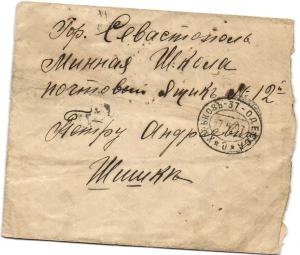 Гор. Севастополь
Минная Школа
почтовый ящикъ № 12й
Петру Андреевичу
Шишкѣ
ХАРЬКОВЪ-37-ОДЕССА